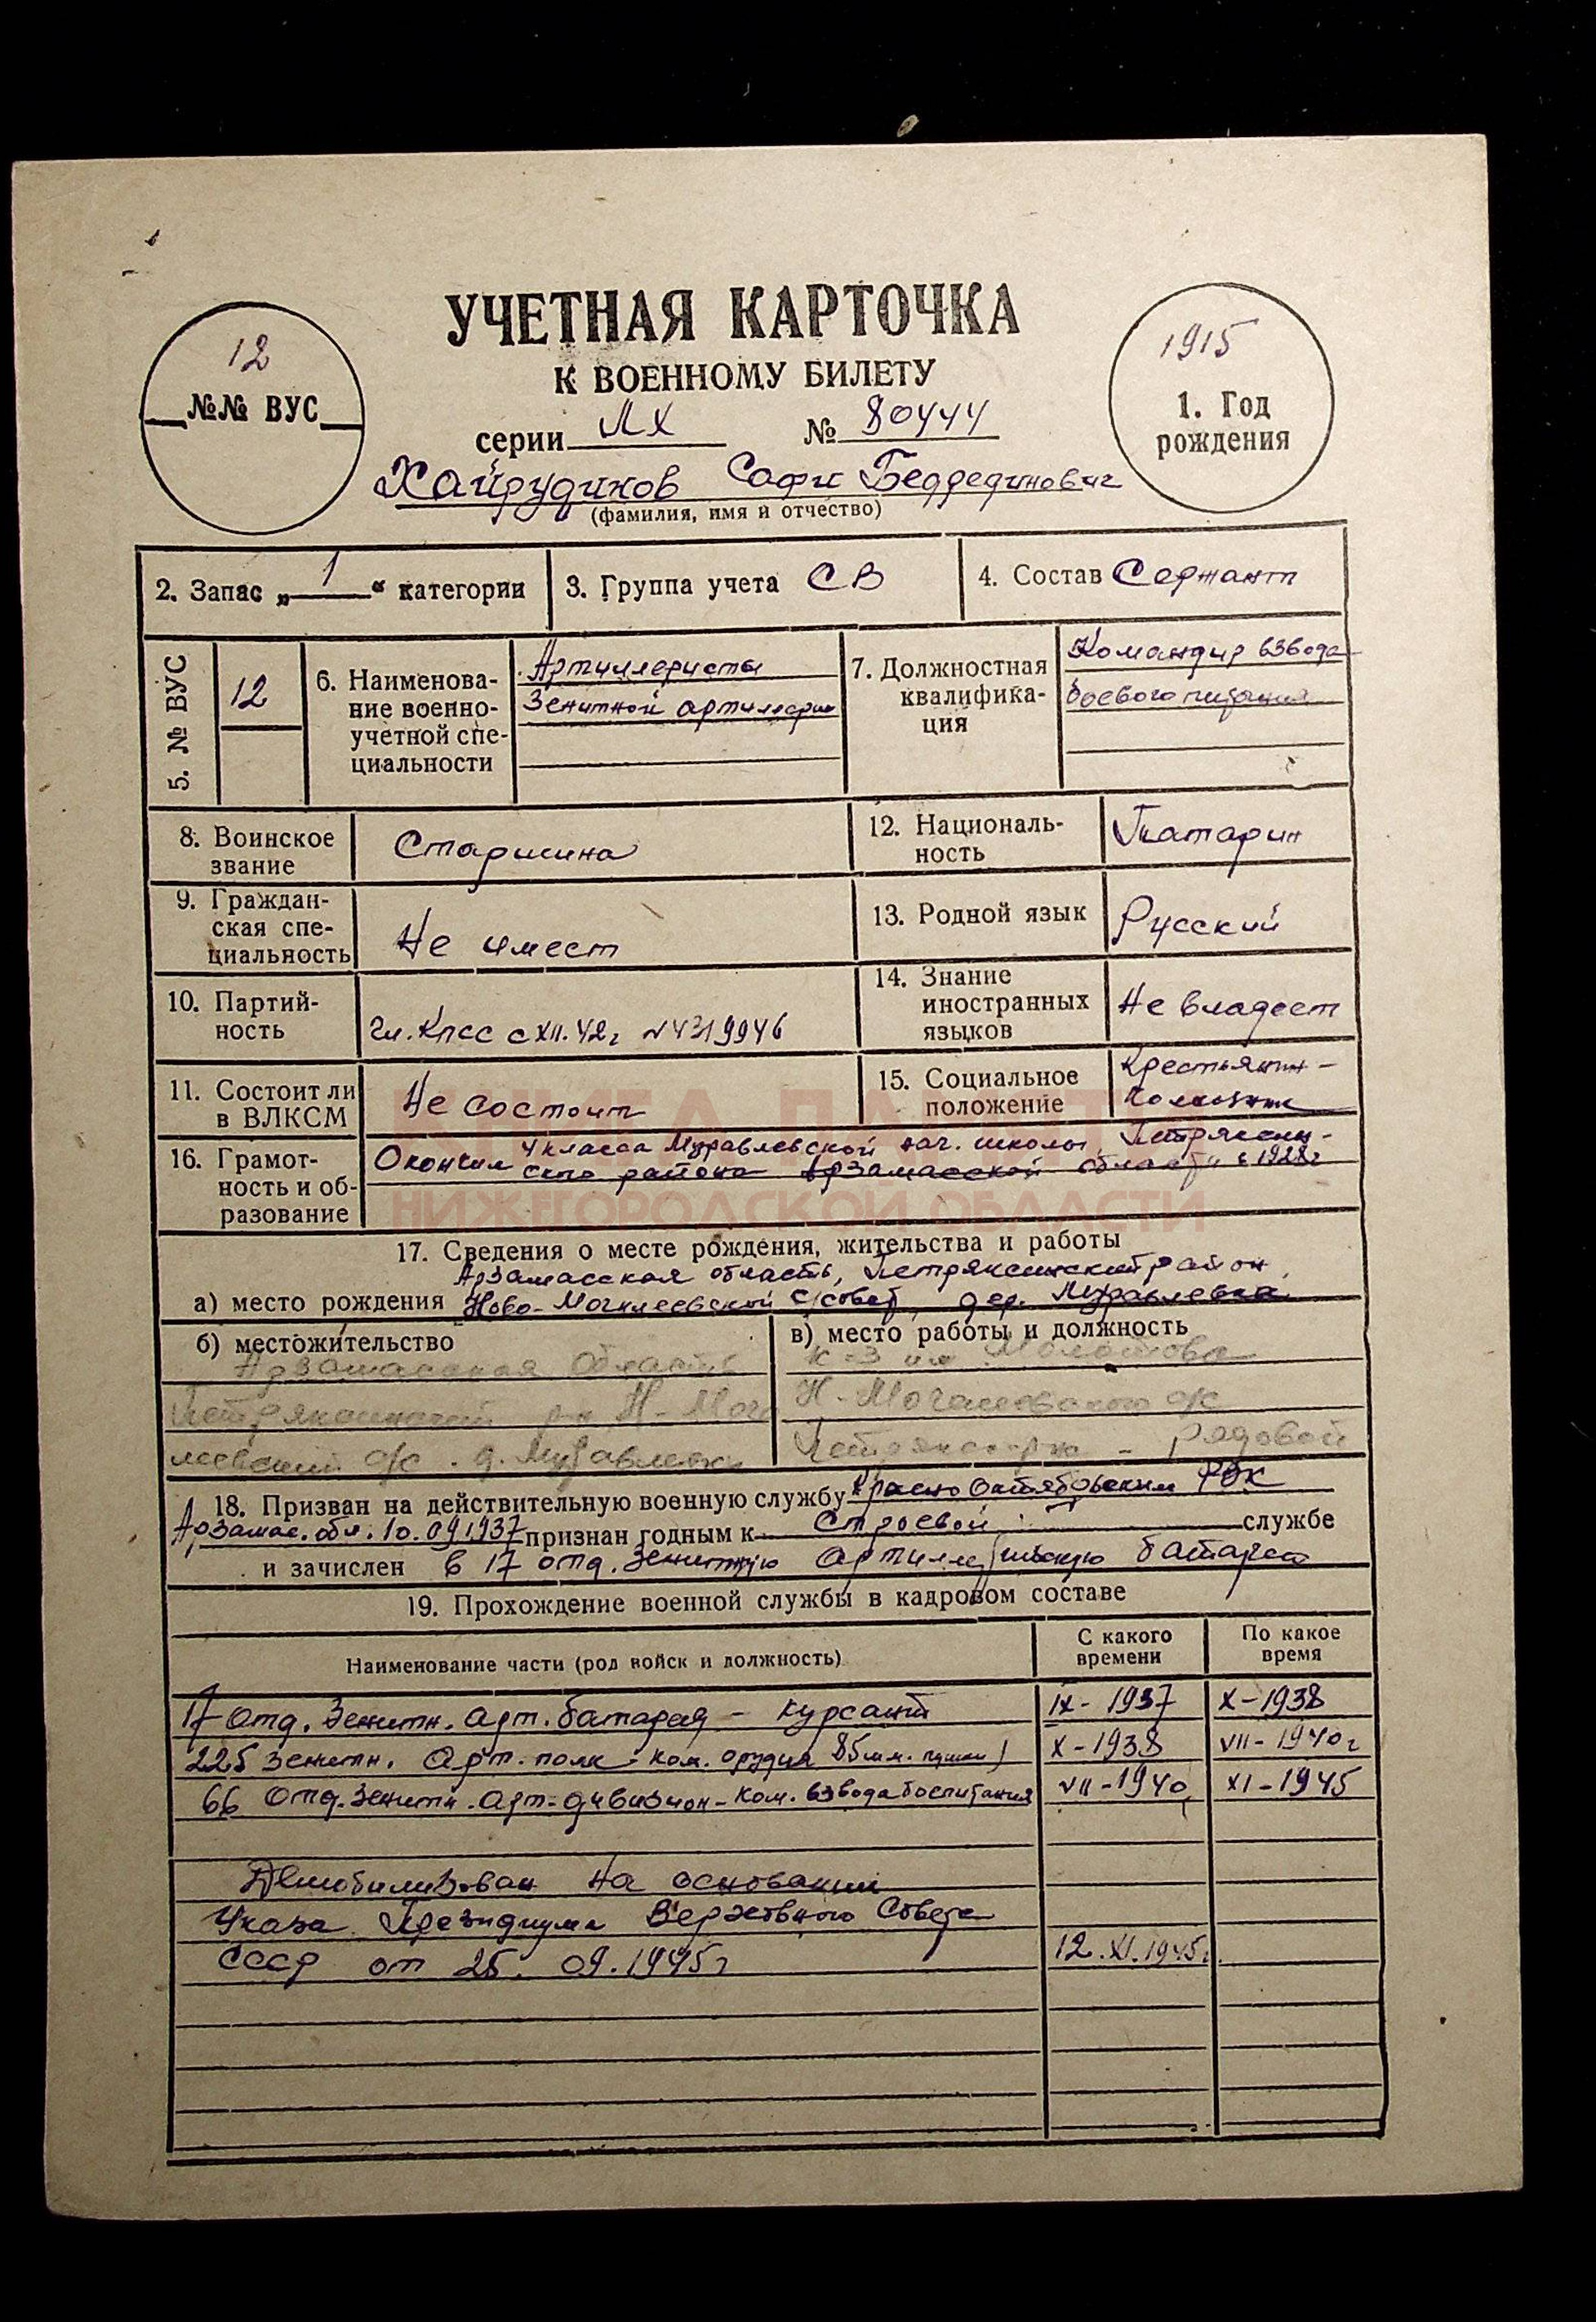 УЧЕТНАЯ КАРТОЧКА
К ВОЕННОМУ БИЛЕТУ
12
№№ ВУС
серии МХ № 80444
1915
1. Год
рождения
Хайрудинов Софи Беддединович
(фамилия, имя и отчество)
2. Запас „1“ категории
3. Группа учета СВ
4. Состав Сержант
5. № ВУС
12
6. Наименова-
ние военно-
учетной спе-
циальности
Артиллеристы
Зенитной артиллерии
7. Должностная
квалифика-
ция
Командир взвода
боевого питания
8. Воинское
звание
Старшина
12. Националь-
ность
Татарин
9. Граждан-
ская спе-
циальность
Не имеет
13. Родной язык
Русский
10. Партий-
ность
Чл. КПСС с XII. 42г №4319946
14. Знание
иностранных
языков
Не владеет
11. Состоит ли
в ВЛКСМ
Не состоит
15. Социальное
положение
Крестьянин-
колхозник
16. Грамот-
ность и об-
разование
Окончил 4 класса Муравлевской нач. школы, Петряксин-
ского района Арзамасской области в 1928г
НИЖЕГОРОДСКОЙ ОБЛАСТИ
17. Сведения о месте рождения, жительства и работы
Арзамасская область, Петряксинский район,
а) место рождения Ново-Мочалеевской с/совет, дер. Муравлевка
б) местожительство
Арзамасская область
Петряксинский р-н Н-Моча
леевский с/с. д. Муравлевка
в) место работы и должность
к-з им Молотова
Н-Мочалеевского с/с
Петряксин. р-на - рядовой
18. Призван на действительную военную службу Красно Октябрьским РВК
Арзамас. обл. 10.09.1937 признан годным к Строевой службе
и зачислен в 17 отд. Зенитную Артиллерийскую батарею
19. Прохождение военной службы в кадровом составе
Наименование части (род войск и должность)
С какого
времени
По какое
время
17 отд. Зенитн. арт. батарея - курсант IX-1937 X-1938
225 зенитн. Арт. полк - ком. орудия 85мм. пушки) X-1938 VII-1940г
66 Отд. Зенитн. Арт-дивизион - ком. взвода боепитания VII-1940 XI-1945
Демобилизован на основании
Указа Президиума Верховного Совета
СССР от 25. 09. 1945г 12. XI. 1945г.